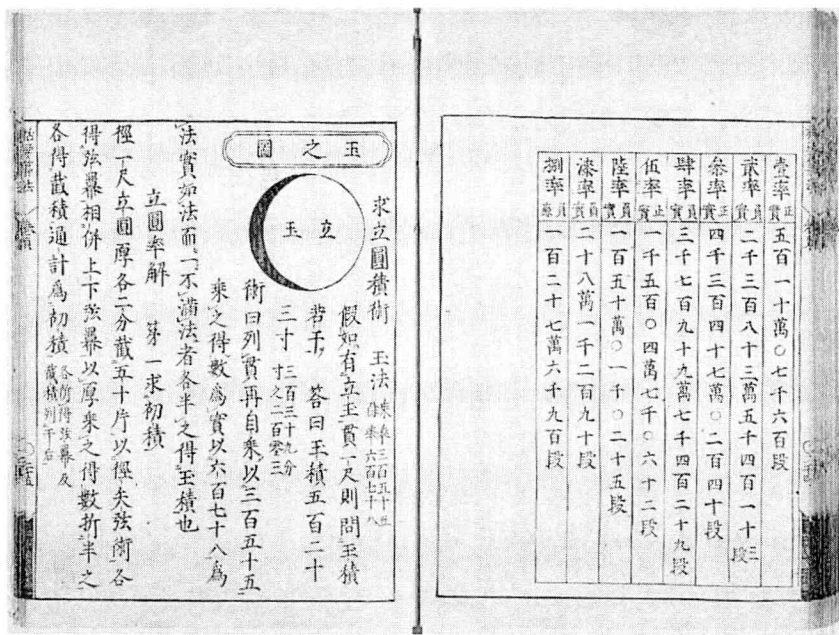 壹率 正實 五百一十萬〇七千六百段
貳率 負實 二千三百八十三萬五千四百一十三段
叁率 正實 四千三百四十七萬〇二百四十段
肆率 負實 三千七百九十九萬七千四百二十九段
伍率 正實 一千五百〇四萬七千〇六十二段
陸率 負實 一百五十萬〇一千〇二十五段
漆率 負實 二十八萬一千二百九十段
捌率 一百二十七萬六千九百段
玉之圖
立玉
求立圓積術 玉法 乘率三百五十五
除率六百七十八
假如有立玉貫一尺則問玉積
若干 答曰玉積五百二十
三寸 三百三十九分
寸之二百零三
術曰列貫再自乘以三百五十五
乘之得數爲實以六百七十八爲
法實如法而一不滿法者各半之得玉積也
立圓率解 第一求初積
徑一尺立圓厚各二分截五十片以徑矢弦術各
得弦冪相併上下弦冪以厚乘之得數折半之
各得截積通計爲初積 各所得弦冪及
截積列于右